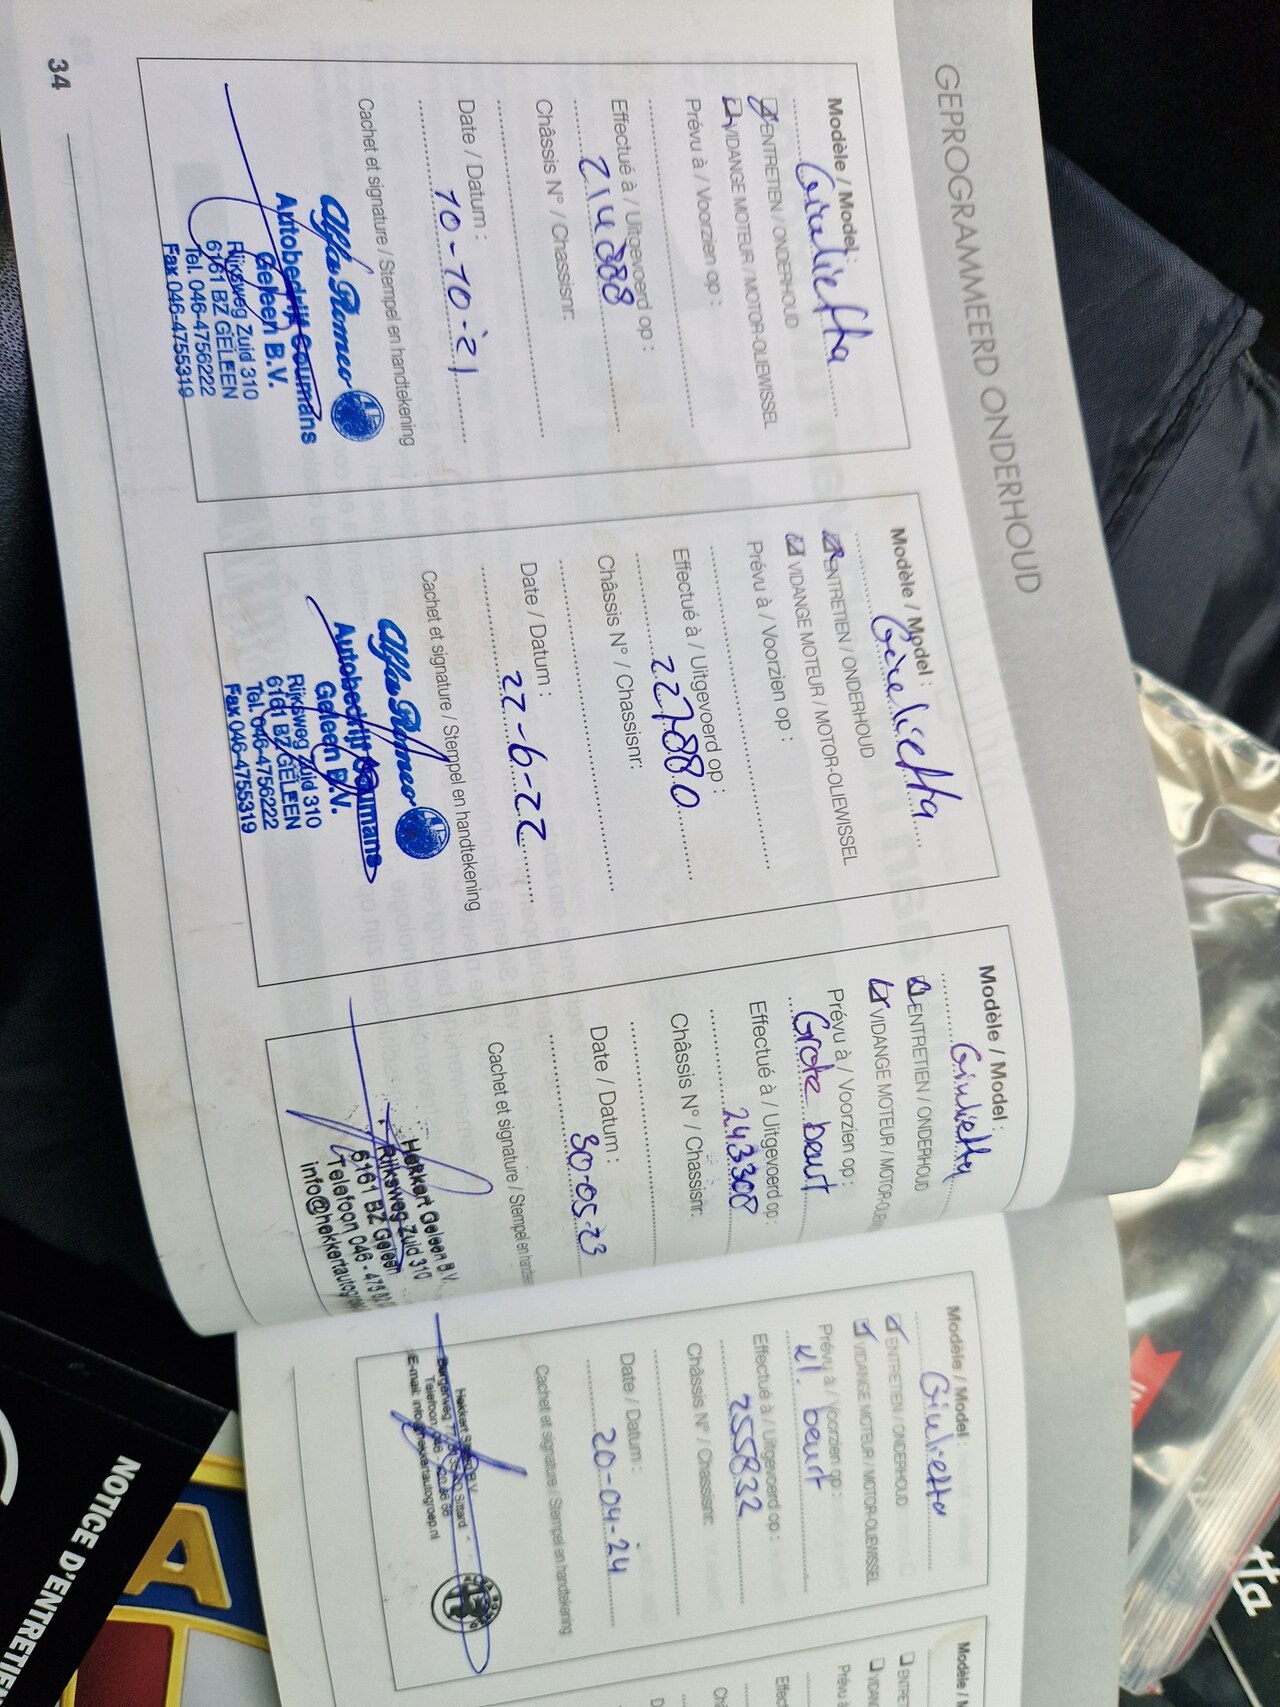 GEPROGRAMMEERD ONDERHOUD
Modèle / Model :
Giulietta
ENTRETIEN / ONDERHOUD
VIDANGE MOTEUR / MOTOR-OLIEWISSEL
Prévu à / Voorzien op :
Effectué à / Uitgevoerd op :
214088
Châssis N° / Chassisnr:
Date / Datum :
10-10-21
Cachet et signature / Stempel en handtekening
Alfa Romeo
Autobedrijf Coumans
Geleen B.V.
Rijksweg Zuid 310
6161 BZ GELEEN
Tel. 046-4756222
Fax 046-4755319
34
Modèle / Model :
Giulietta
ENTRETIEN / ONDERHOUD
VIDANGE MOTEUR / MOTOR-OLIEWISSEL
Prévu à / Voorzien op :
Effectué à / Uitgevoerd op :
227880
Châssis N° / Chassisnr:
Date / Datum :
22-6-22
Cachet et signature / Stempel en handtekening
Alfa Romeo
Autobedrijf Coumans
Geleen B.V.
Rijksweg Zuid 310
6161 BZ GELEEN
Tel. 046-4756222
Fax 046-4755319
Modèle / Model :
Giulietta
ENTRETIEN / ONDERHOUD
VIDANGE MOTEUR / MOTOR-OLIE
Prévu à / Voorzien op :
Grote beurt
Effectué à / Uitgevoerd op :
243308
Châssis N° / Chassisnr:
Date / Datum :
30-05-23
Cachet et signature / Stempel en handte
Hekkert Geleen B.V.
Rijksweg Zuid 310
6161 BZ Geleen
Telefoon 046 - 475
info@hekkertautogroe
Modèle / Model :
Giulietta
ENTRETIEN / ONDERHOUD
VIDANGE MOTEUR / MOTOR-OLIEWISSEL
Prévu à / Voorzien op :
kl. beurt
Effectué à / Uitgevoerd op :
255832
Châssis N° / Chassisnr:
Date / Datum :
20-04-24
Cachet et signature / Stempel en handtekening
Hekkert
Bergerweg
Sittard
Telefoon 046
E-mail: info@hekkertautogroep.nl
Modèle / M
ENTRE
VIDAN
Prévu à
Effect
Châ
D
NOTICE D'ENTRETIEN
tta